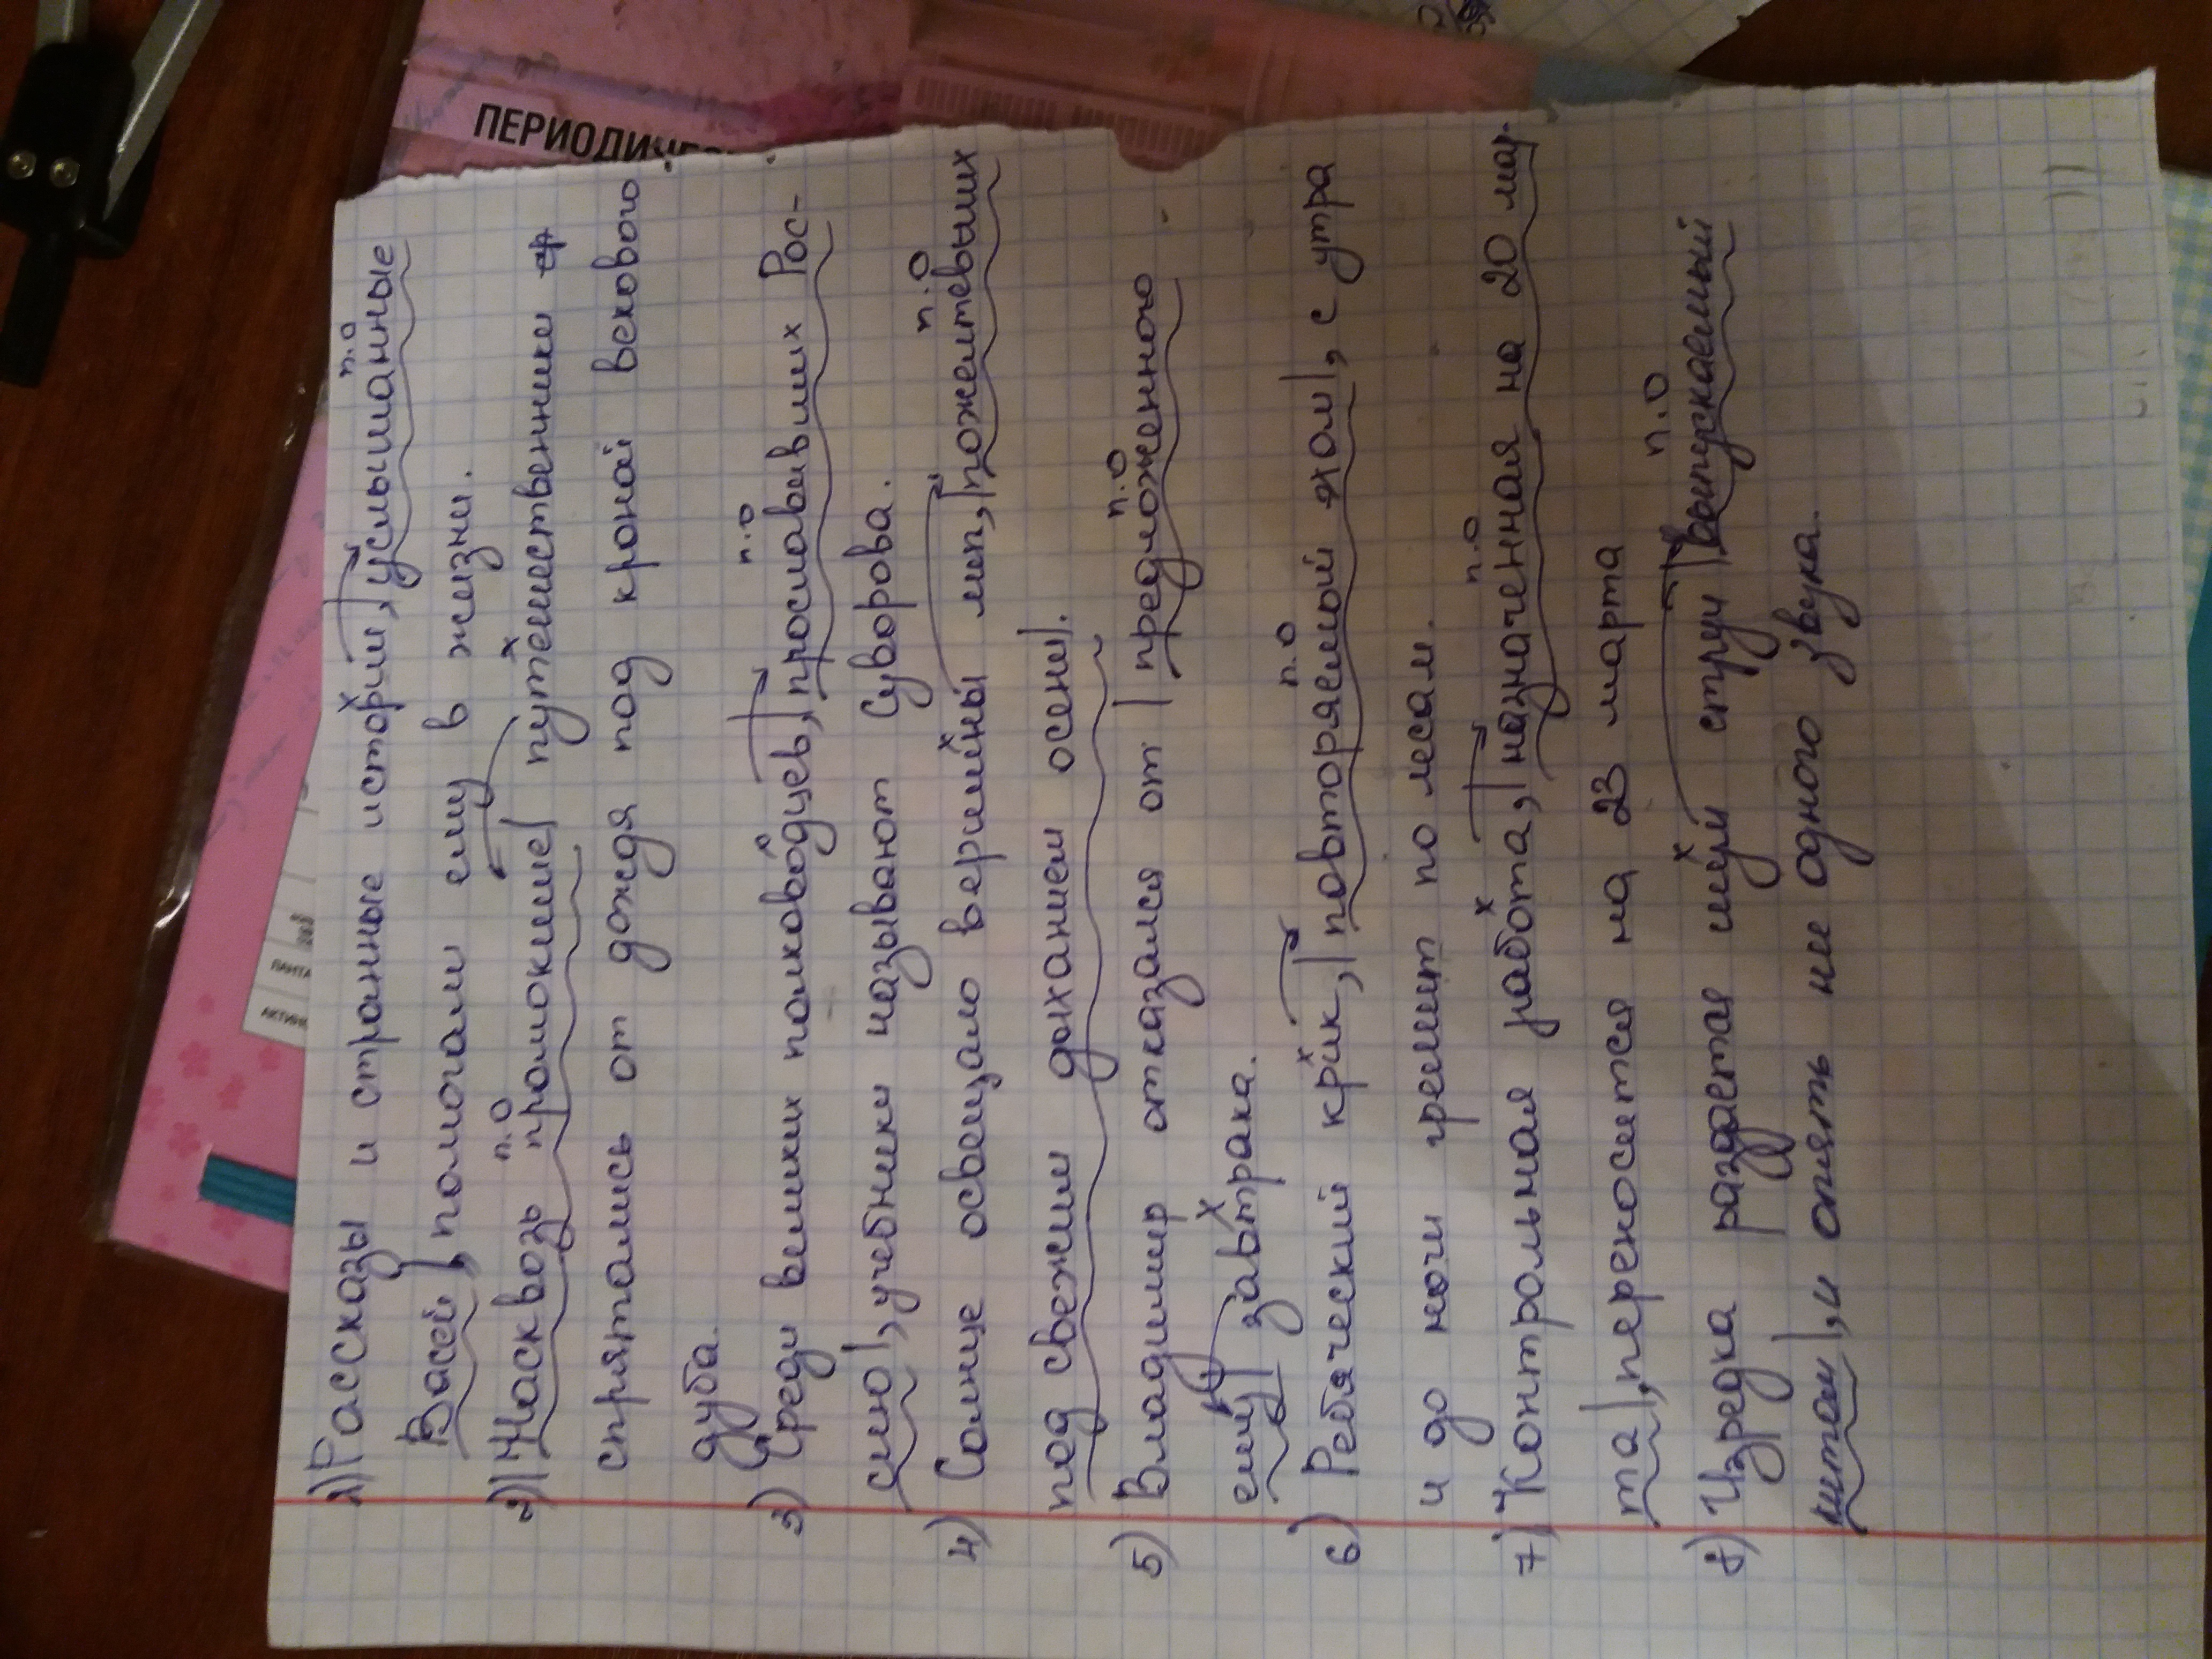 1) Рассказы и странные истории, |услышанные
п.о
Васей|, помогали ему в жизни.
2) |Насквозь промокшие| путешественники
п.о
спрятались от дождя под кроной векового
дуба.
3) Среди великих полководцев, |прославивших Рос-
п.о
сию|, учебники называют Суворова.
4) Солнце освещало вершины лип, |пожелтевших
п.о
под свежим дыханием осени|.
5) Владимир отказался от |предложенного
п.о
ему| завтрака.
6) Ребяческий крик, |повторяемый эхом|, с утра
п.о
и до ночи гремит по лесам.
7) Контрольная работа, |назначенная на 20 мар-
п.о
та|, переносится на 23 марта
8) Изредка раздается шум струи |выпускаемый
п.о
китом|, и опять ни одного звука.
ПЕРИОДИЧЕС